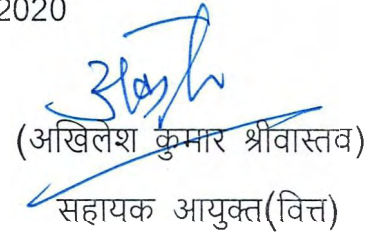 2020
(अखिलेश कुमार श्रीवास्तव)
सहायक आयुक्त(वित्त)